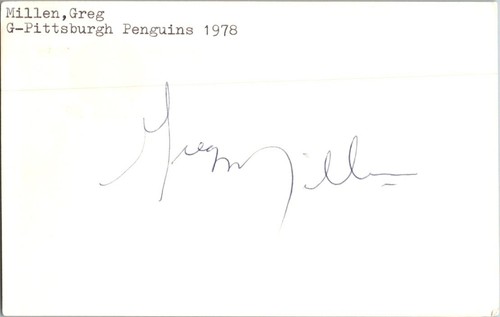 Millen,Greg
G-Pittsburgh Penguins 1978
Greg Millen